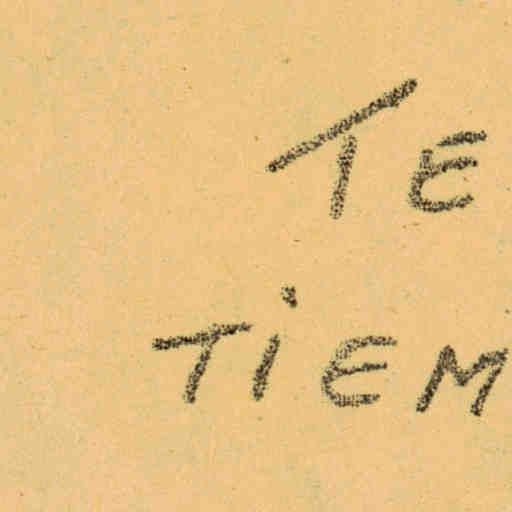 TE
TiEM